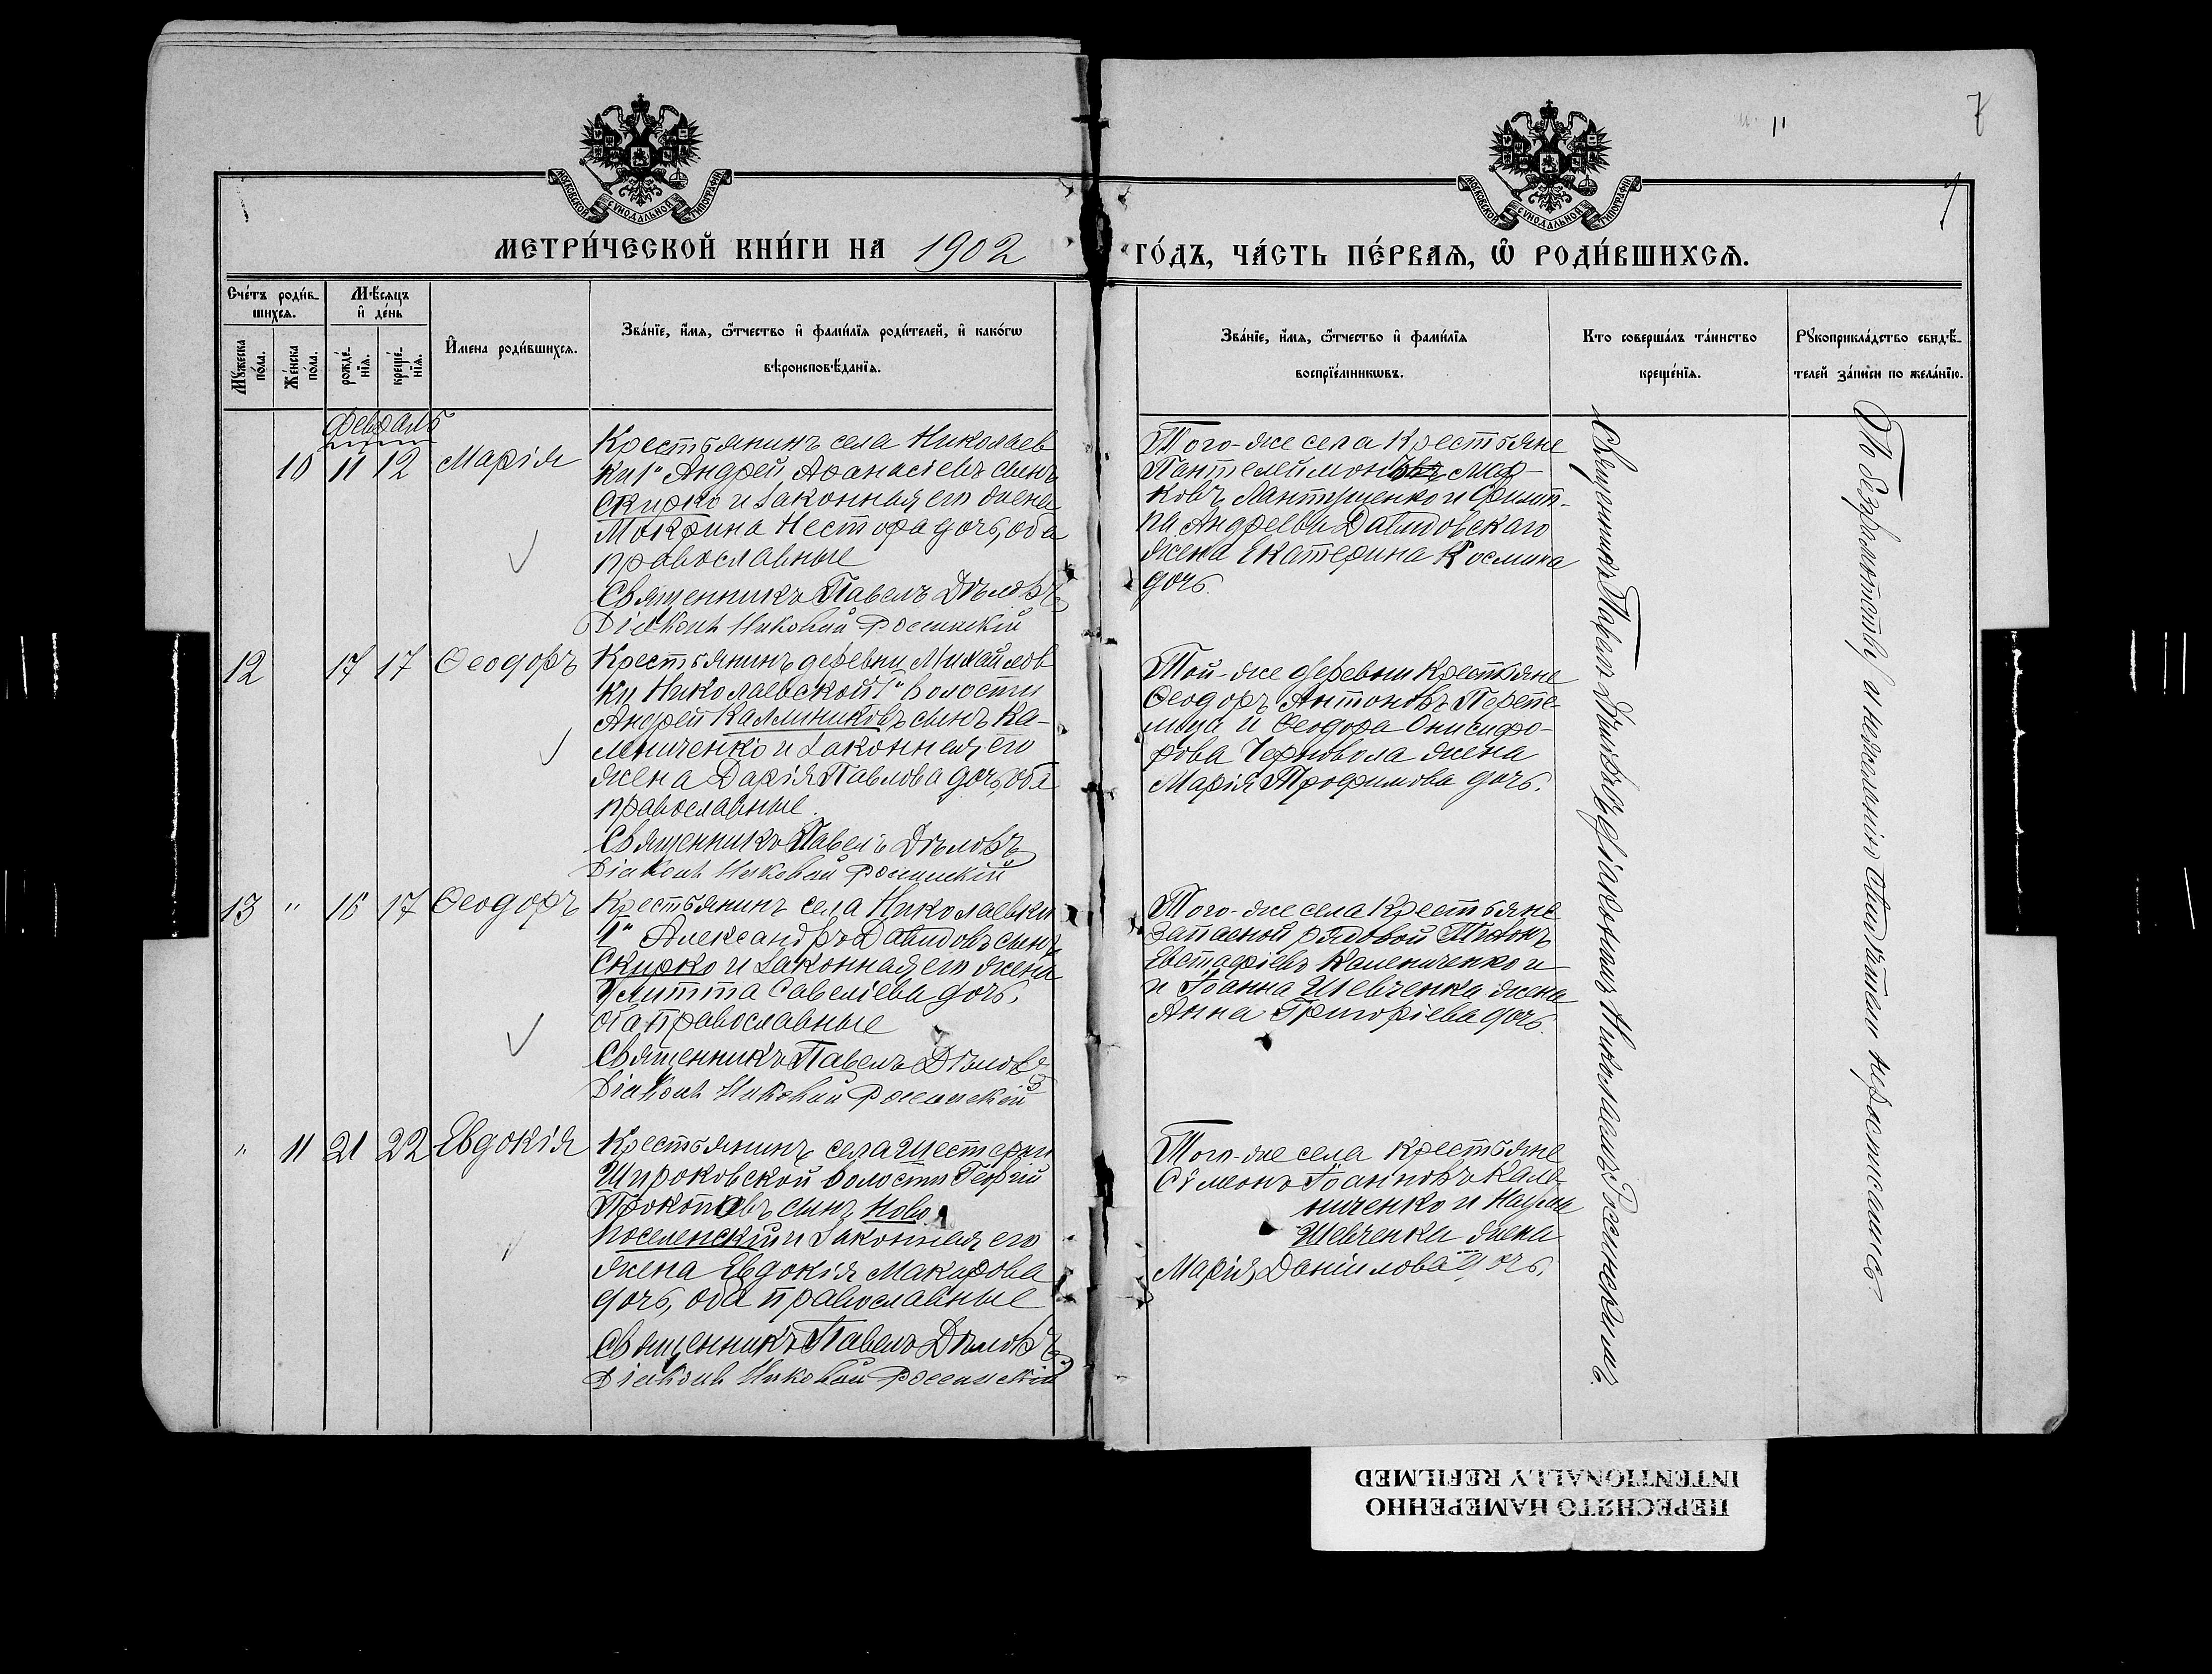 7
11
7
МОСКОВСКОЙ СУНОДАЛЬНОЙ ТИПОГРАФІИ
МОСКОВСКОЙ СУНОДАЛЬНОЙ ТИПОГРАФІИ
МЕТРИ́ЧЕСКОЙ КНИ́ГИ НА 1902
ГО́ДЪ, ЧА́СТЬ ПЕ́РВАѦ, Ѽ РОДИ́ВШИХСѦ.
Сче́тъ роди́в-
шихсѧ.
Мꙋжеска по́ла.
Же́нска по́ла.
Мѣ́сѧцъ и де́нь
рожде́нїѧ.
креще́нїѧ.
И҆мена роди́вшихсѧ.
Зва́нїе, и҆́мѧ, ѻ҆́тчество и҆ фами́лїѧ роди́телей, и҆ како́гѡ
вѣроисповѣ́данїѧ.
Зва́нїе, и҆́мѧ, ѻ҆́тчество и҆ фами́лїѧ
воспрїе́мникѡвъ.
Кто соверша́лъ та́инство
креще́нїѧ.
Рꙋкоприкла́дство свидѣ́-
телей за́писи по жела́нїю.
Февраль
10 11 12 Марія
Крестьянинъ села Николаев
ки 1й Андрей Аѳанасіевъ сынъ
Скирко и законная его жена
Мокрина Нестора дочь, оба
православные
Священникъ Павелъ Дѣловъ
Діаконъ Николай Россинскій
Того-же села крестьяне
Пантелеймонъ Мар-
ковъ Лантушенко и Филип-
па Андреева Давидовскаго
жена Екатерина Космина
дочь.
12 17 17 Ѳеодоръ
Крестьянинъ деревни Михайлов
ки Николаевской 1й волости
Андрей Каллиниковъ сынъ Ка-
лениченко и законная его
жена Дарія Павлова дочь, оба
православные.
Священникъ Павелъ Дѣловъ
Діаконъ Николай Россинскій
Той-же деревни крестьяне
Ѳеодоръ Антоновъ Перепе-
лица и Ѳеодора Онисифо-
рова Черновола жена
Марія Трофимова дочь.
13 " 16 17 Ѳеодоръ
Крестьянинъ села Николаевки
1й Александръ Давидовъ сынъ
Скирко и законная его жена
Улитта Савеліева дочь,
оба православные
Священникъ Павелъ Дѣловъ
Діаконъ Николай Россинскій
Того-же села крестьяне
запасной рядовой Тихонъ
Евстафіевъ Калениченко и
и Іоанна Шевченка жена
Анна Григоріева дочь.
" 11 21 22 Евдокія
Крестьянинъ села Шестерни
Широковской волости Георгій
Прокопіевъ сынъ Ново
поселенскій и законная его
жена Евдокія Макарова
дочь, оба православные
Священникъ Павелъ Дѣловъ
Діаконъ Николай Россинскій
Того-же села крестьяне
Сѵмеонъ Іоанновъ Кале-
ниченко и Наума
Шевченки жена
Марія Даніилова дочь.
Священникъ Павелъ Дѣловъ съ діакономъ Николаемъ Россинскимъ.
По безграмотству и нежеланію свидѣтели не росписались.
ПЕРЕСНЯТО НАМЕРЕННО
INTENTIONALLY REFILMED